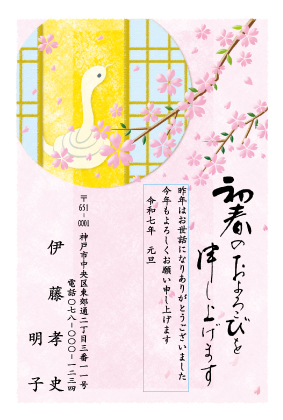 初春のおよろこびを
申し上げます
昨年はお世話になりありがとうございました
今年もよろしくお願い申し上げます
令和七年　元旦
〒651-0001
神戸市中央区東郷通二丁目三番一一号
電話〇七八-〇〇〇-一二三四
伊藤孝史
明子